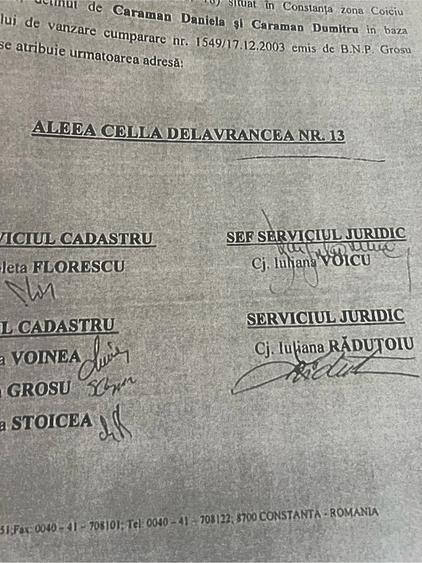 deținut de Caraman Daniela și Caraman Dumitru in baza
situat în Constanța zona Coiciu
lui de vanzare cumparare nr. 1549/17.12.2003 emis de B.N.P. Grosu
se atribuie urmatoarea adresă:
ALEEA CELLA DELAVRANCEA NR. 13
VICIUL CADASTRU
leta FLORESCU
SEF SERVICIUL JURIDIC
Cj. Iuliana VOICU
L CADASTRU
a VOINEA
GROSU
a STOICEA
SERVICIUL JURIDIC
Cj. Iuliana RĂDUȚOIU
51;Fax: 0040 – 41 – 708101; Tel: 0040 – 41 – 708122; 8700 CONSTANTA - ROMANIA